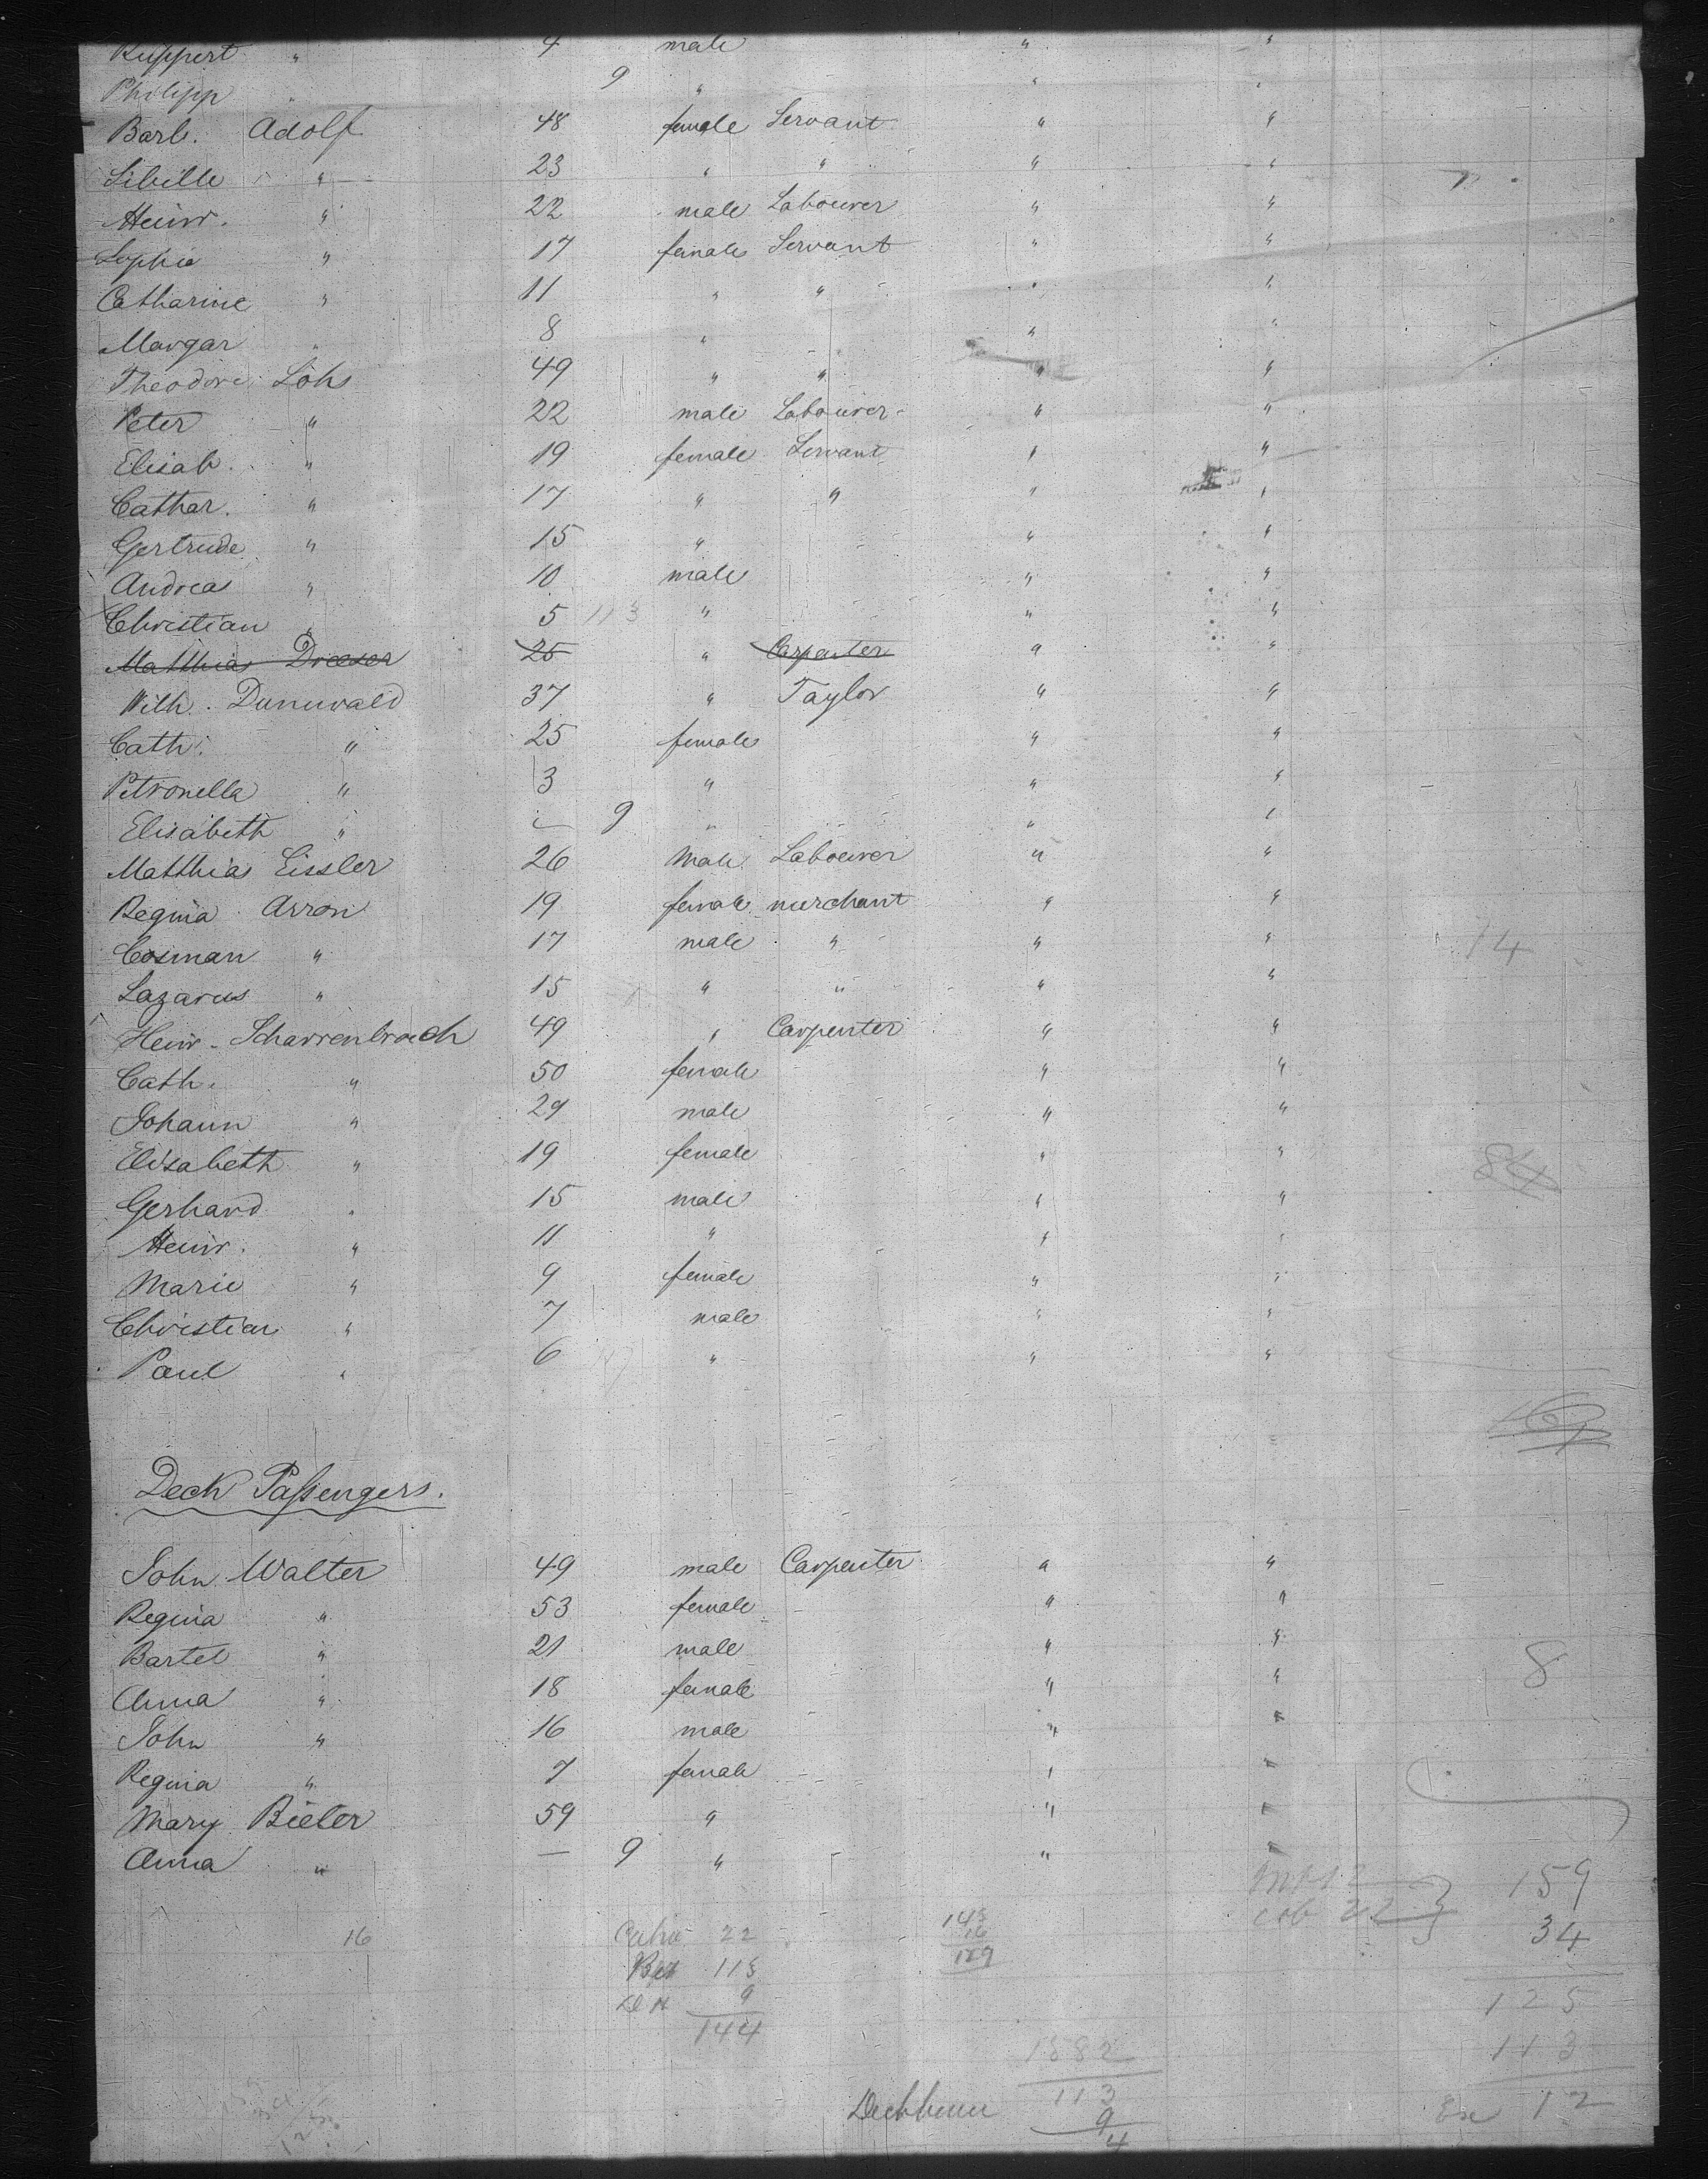 Ruppert " 4 male " "
Philipp " 9 " " "
Barb. Adolf 48 female Servant " "
Sibille " 23 " " " "
Heinr. " 22 male Labourer " "
Sophie " 17 female Servant " "
Catharine " 11 " " " "
Margar " 8 " " "
Theodore Löhs 49 " " " "
Peter " 22 male Labourer " "
Elisab. " 19 female Servant " "
Cathar. " 17 " " " "
Gertrude " 15 " " "
Andreas " 10 male " "
Christian " 5 113 " " "
Matthias Dreeser 25 " Carpenter " "
Wilh. Dunuvald 37 " Taylor " "
Cath. " 25 female " "
Petronella " 3 " " "
Elisabeth " — 9 " " "
Matthias Eissler 26 male Labourer " "
Regina Arron 19 female merchant " "
Cosman " 17 male " " " 14
Lazarus " 15 " " " "
Heinr. Scharrenbroich 49 " Carpenter " "
Cath. " 50 female " "
Johann " 29 male " "
Elisabeth " 19 female " " 84
Gerhard " 15 male " "
Heinr. " 11 " " "
Marie " 9 female " "
Christian " 7 male " "
Paul " 6 " " "
Deck Passengers.
John Walter 49 male Carpenter " "
Regina " 53 female " "
Bartel " 21 male " " 8
Anna " 18 female " "
John " 16 male " "
Regina " 7 female " "
Mary Bieler 59 " " "
Anna " — 9 " " "
159
16 22 34
16
159
113 125
9
144 113
1882
113 12
9
4